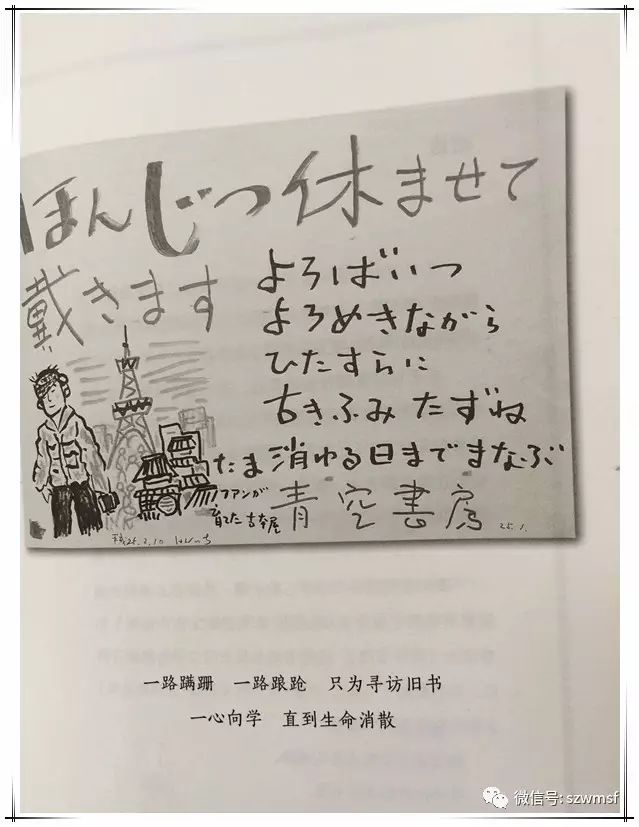 ほんじつ休ませて
戴きます
よろばいつ
よろめきながら
ひたすらに
古きふみ たずね
たま消ゆる日までまなぶ
ファンが
育てた古本屋
青空書房
25.2.10
一路蹒跚 一路踉跄 只为寻访旧书
一心向学 直到生命消散
微信号: szwmsf